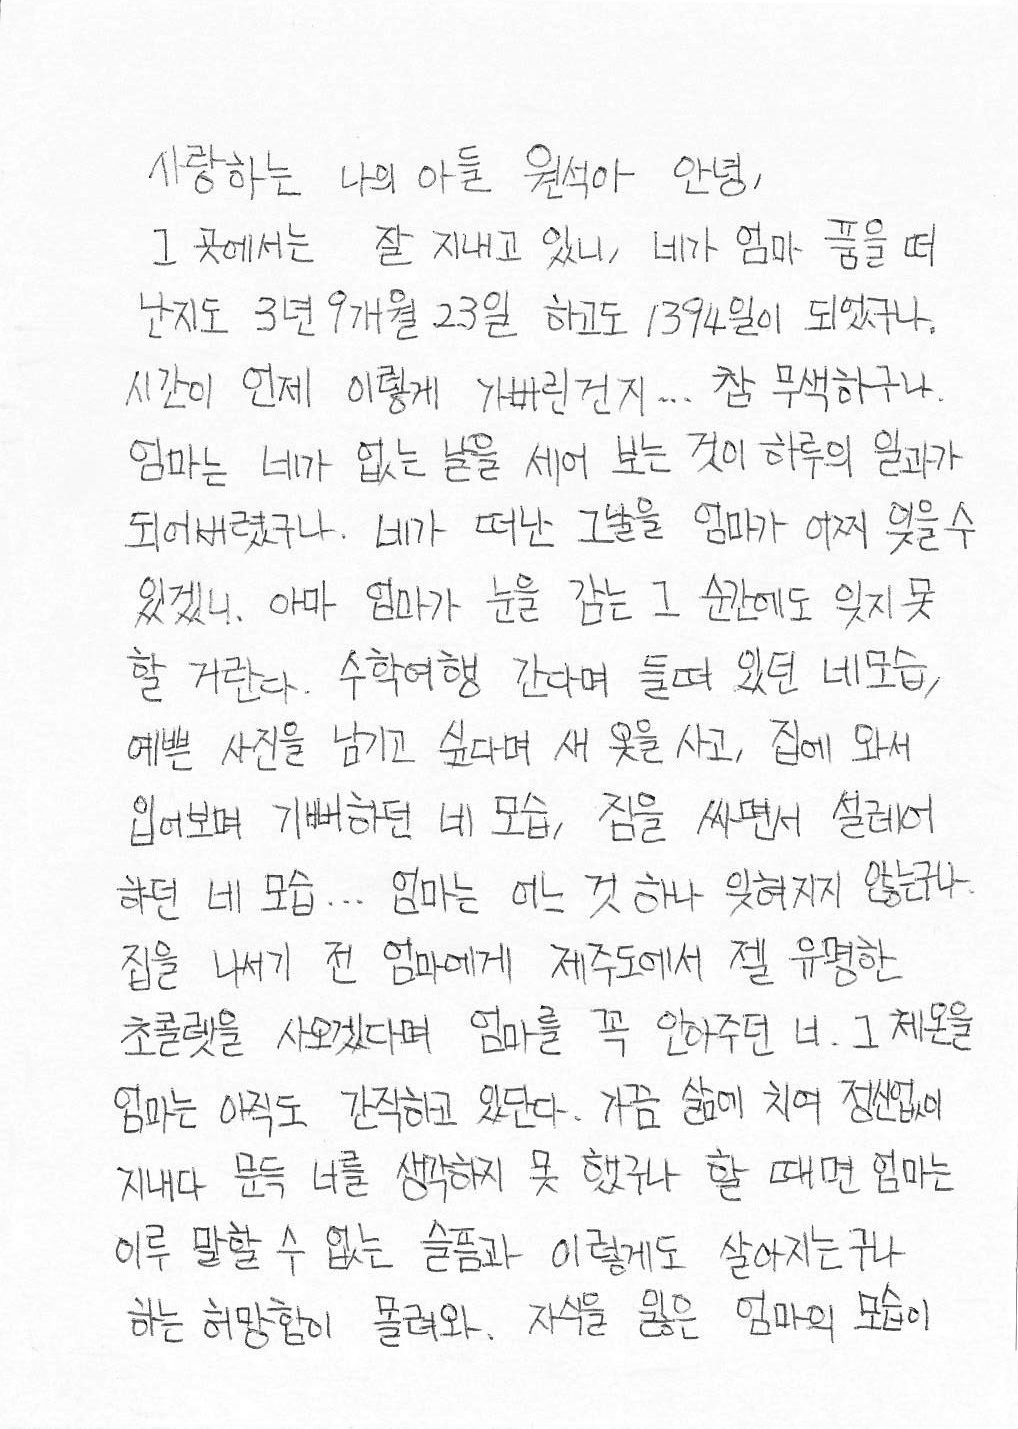 사랑하는 나의 아들 원석아 안녕,
그 곳에서는 잘 지내고 있니, 네가 엄마 품을 떠
난지도 3년 9개월 23일 하고도 1394일이 되었구나.
시간이 언제 이렇게 가버린건지... 참 무색하구나.
엄마는 네가 없는 날을 세어 보는 것이 하루의 일과가
되어버렸구나. 네가 떠난 그날을 엄마가 어찌 잊을 수
있겠니. 아마 엄마가 눈을 감는 그 순간에도 잊지 못
할 거란다. 수학여행 간다며 들떠 있던 네모습,
예쁜 사진을 남기고 싶다며 새 옷을 사고, 집에 와서
입어보며 기뻐하던 네 모습, 짐을 싸면서 설레어
하던 네 모습... 엄마는 어느 것 하나 잊혀지지 않는구나.
집을 나서기 전 엄마에게 제주도에서 젤 유명한
초콜렛을 사오겠다며 엄마를 꼭 안아주던 너. 그 체온을
엄마는 아직도 간직하고 있단다. 가끔 삶에 치여 정신없이
지내다 문득 너를 생각하지 못 했구나 할 때면 엄마는
이루 말할 수 없는 슬픔과 이렇게도 살아지는구나
하는 허망함이 몰려와. 자식을 잃은 엄마의 모습이